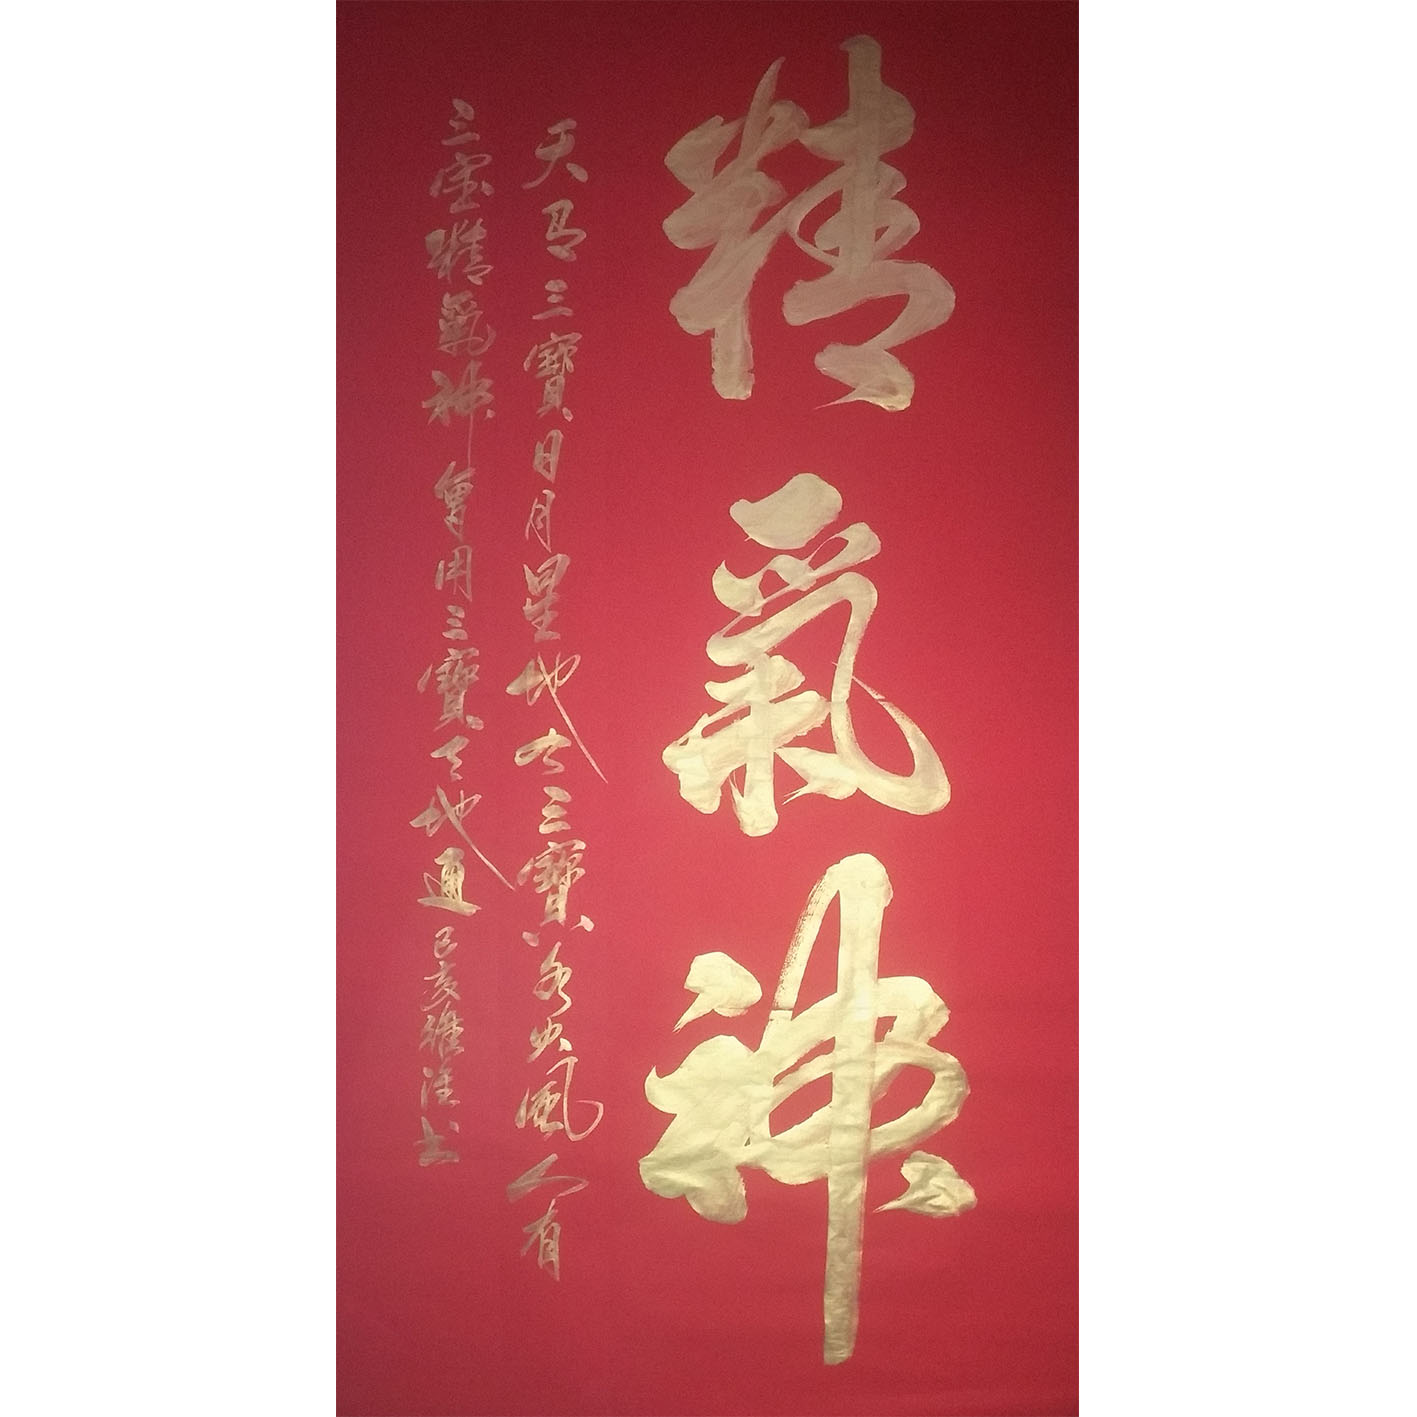 精氣神
天有三寶日月星地有三寶水火風人有
三寶精氣神會用三寶天地通己亥雅淮书